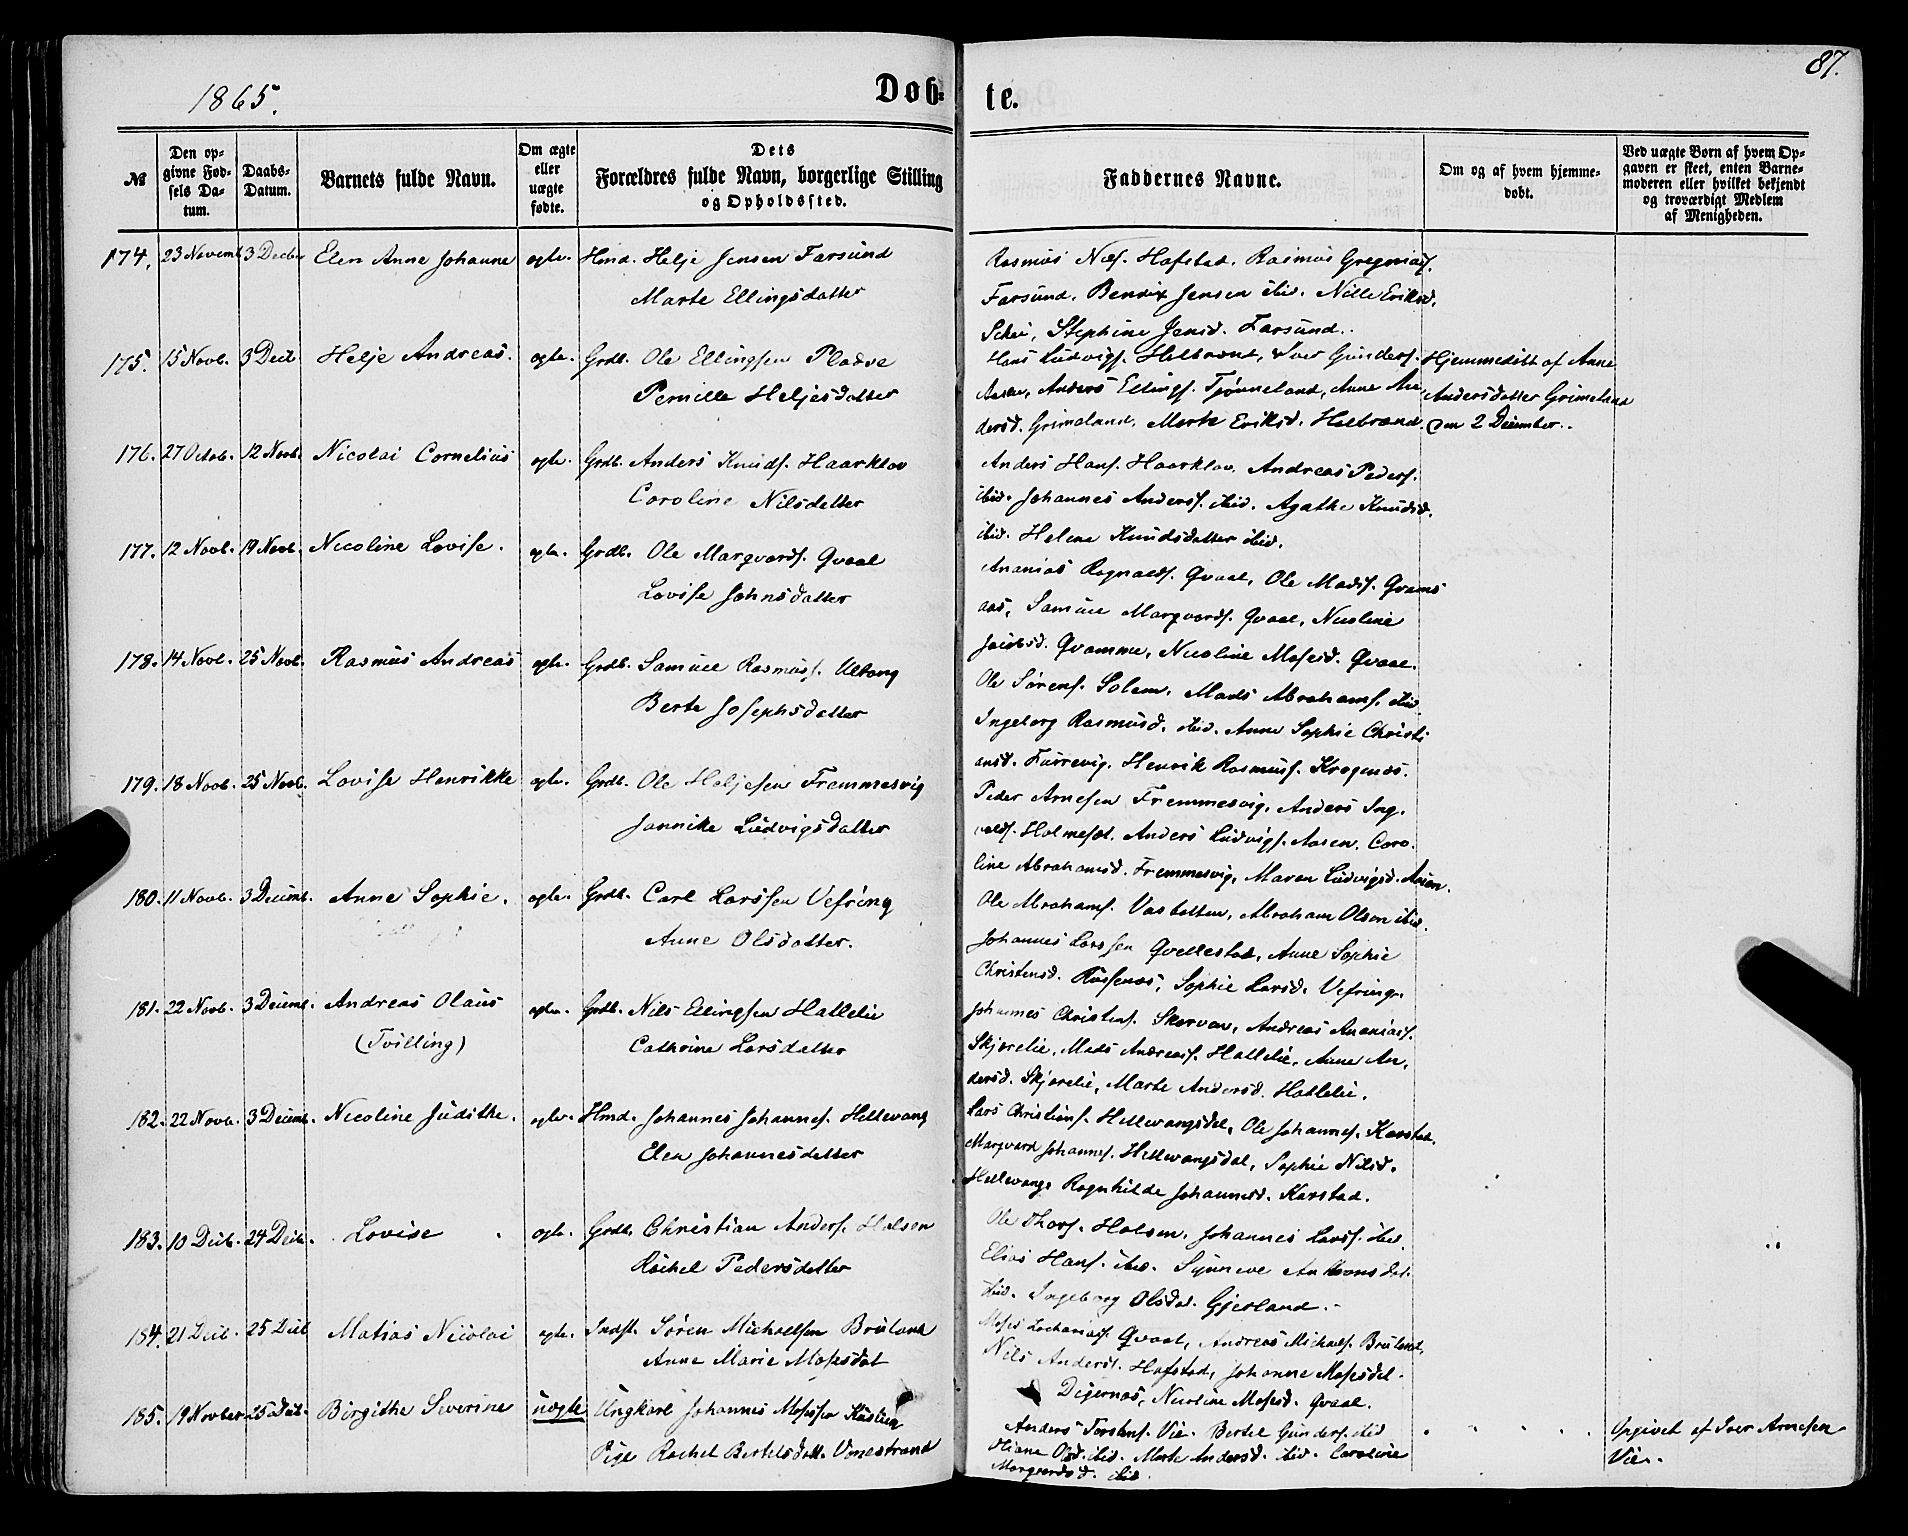 87.
1865.
Døbte.
№
Den opgivne Fødsels Datum.
Daabs-Datum.
Barnets fulde Navn.
Om ægte eller uægte fødte.
Dets Forældres fulde Navn, borgerlige Stilling og Opholdssted.
Faddernes Navne.
Om og af hvem hjemmedøbt.
Ved uægte Børn af hvem Opgaven er skeet, enten Barnemoderen eller hvilket bekjendt og troværdigt Medlem af Menigheden.
174. 23 Novemb 3 Decbr Elen Anne Johanne ægte. Hmd. Helje Jensen Farsund
Marte Ellingsdatter
Rasmus Nes. Hafstad. Rasmus Gregoriass.
Farsund. Bendix Jensen ibid. Nille Eriksd.
Schei, Stephine Jensd. Farsund.
175. 15 Novb. 3 Decb Helje Andreas. ægte. Grdb. Ole Ellingsen Pladse
Pernille Heljesdatter
Hans Ludvigs. Helbrand, Iver Gunders.
Aasen, Anders Ellings. Tjønneland, Anne An
dersd. Grimeland. Marte Eriksd. Helbrand.
Hjemmedøbt af Anne
Andersdatter Grimeland
den 2 December.
176. 27 Octob. 12 Novb. Nicolai Cornelius ægte. Grdb. Anders Knuds. Haarklov
Caroline Nilsdatter
Anders Hans. Haarklov. Andreas Peders.
ibid. Johannes Anderss. ibid. Agathe Knudsd.
ibid. Helene Knudsdatter ibid.
177. 12 Novb. 19 Novb. Nicoline Lovise. ægte. Grdb. Ole Marqvards. Qvaal
Lovise Johnsdatter
Ananias Ragnalds. Qvaal, Ole Mads. Grams
aas, Samuel Marqvards. Qvaal, Nicoline
Jacobsd. Qvamme, Nicoline Mosesd. Qvaal.
178. 14 Novb. 25 Novb. Rasmus Andreas ægte. Grdb. Samuel Rasmuss. Ullvang
Berte Josephsdatter
Ole Sørens. Solem. Mads Abrahams. ibid
Ingeborg Rasmusd. ibid. Anne Sophie Christi
ansd. Furrevig. Henrik Rasmuss. Kragenæs.
179. 18 Novb. 25 Novb. Lovise Henrikke ægte. Grdb. Ole Heljesen Fremmesvig
Jannike Ludvigsdatter
Peder Arnesen Fremmesvig. Anders Ing.
valds. Holmesæt. Anders Ludvigs. Aasen. Caro.
line Abrahamsd. Fremmesvig, Maren Ludvigsd. Aasen.
180. 11 Novb. 3 Decemb. Anne Sophie. ægte. Grdb. Carl Larssen Vefring
Anne Olsdatter.
Ole Abrahams. Vasbotten, Abraham Olsen ibid.
Johannes Larssen Qvellestad, Anne Sophie
Christensd. Russenæs, Sophie Larsd. Vefring.
181. 22 Novb. 3 Decemb. Andreas Olaus ægte. Grdb. Nils Ellingsen Hatlelie
(Tvilling) Cathrine Larsdatter
Johannes Christens. Skorven, Andreas Ananiass.
Skjørelie, Mads Andreass. Hatlelie, Anne An.
dersd. Skjørelie, Marte Andersd. Hatlelie.
182. 22 Novb. 3 Decemb. Nicoline Judithe. ægte. Hmd. Johannes Johanness. Hellevang
Elen Johannesdatter
Lars Christians. Hellevangsdal, Ole Johannes. Karstad.
Marqvard Johannes. Hellevangsdal, Sophie Nilsd.
Hellevang. Ragnhilde Johannesd. Karstad.
183. 10 Decb. 24 Decb. Lovise ægte. Grdb. Christian Anders. Halsen
Rachel Pedersdatter
Ole Thors. Halsen. Johannes Larss. ibid.
Elias Hans. ibid. Synneve Antonsdat.
ibid. Ingeborg Olsdat. Gjerland.
184. 21 Decb. 25 Decb Matias Nicolai ægte. Indst. Søren Michaelsen Bruland
Anne Marie Mosesdat
Moses Zachariass. Qvaal, Andreas Michaels. Bruland,
Nils Anders. Hafstad, Johanne Mosesdat.
Digernæs, Nicoline Mosesd. Qvaal.
185. 19 Novber 25 Decb. Birgithe Severine uægte Ungkarl Johannes Mosessen
Pige Rachel Bertelsdatt. Vonestrand
Anders Torstens. Vie. Bertel Gunders. ibid
Oliane Olsd. ibid. Marte Andersd. ibid. Caroline
Marqvardsd. ibid.
Opgivet af Iver Arnesen
Vie.